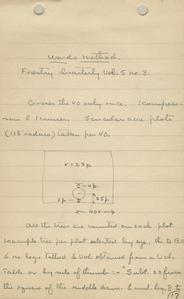 Woods Method.
Forestry Quarterly Vol. 5 no. 3.
Covers the 40 only once. 1 compass-
man & 1 cruiser. 5 circular acre plots
(118' radius) taken per 40.
r = 23 p.
4p.
2p.
25p.
40 r
All the trees are counted on each plot.
1 sample tree per plot selected by eye, the D.B.H.
& no. logs tallied & vol. obtained from a vol.
table or by rule of thumb :- Subt. 60 from
the square of the middle diam. & mul. by .8 to
117